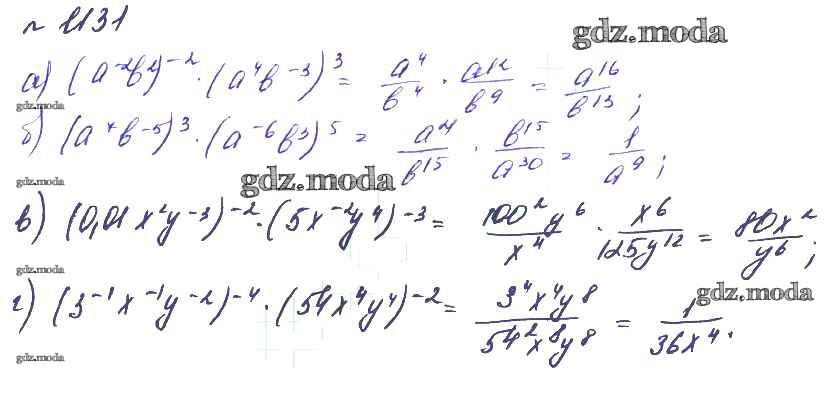 № 1131
gdz.moda
а) (a⁻²b²)⁻² · (a⁴b⁻³)³ = a⁴/b⁴ · a¹²/b⁹ = a¹⁶/b¹³;
gdz.moda
б) (a⁷b⁻⁵)³ · (a⁻⁶b³)⁵ = a²¹/b¹⁵ · b¹⁵/a³⁰ = 1/a⁹;
gdz.moda
gdz.moda
в) (0,01x²y⁻³)⁻² · (5x⁻²y⁴)⁻³ = 100²y⁶/x⁴ · x⁶/125y¹² = 80x²/y⁶;
gdz.moda
г) (3⁻¹x⁻¹y⁻²)⁻⁴ · (54x⁴y⁴)⁻² = 3⁴x⁴y⁸/54²x⁸y⁸ = 1/36x⁴.
gdz.moda
gdz.moda